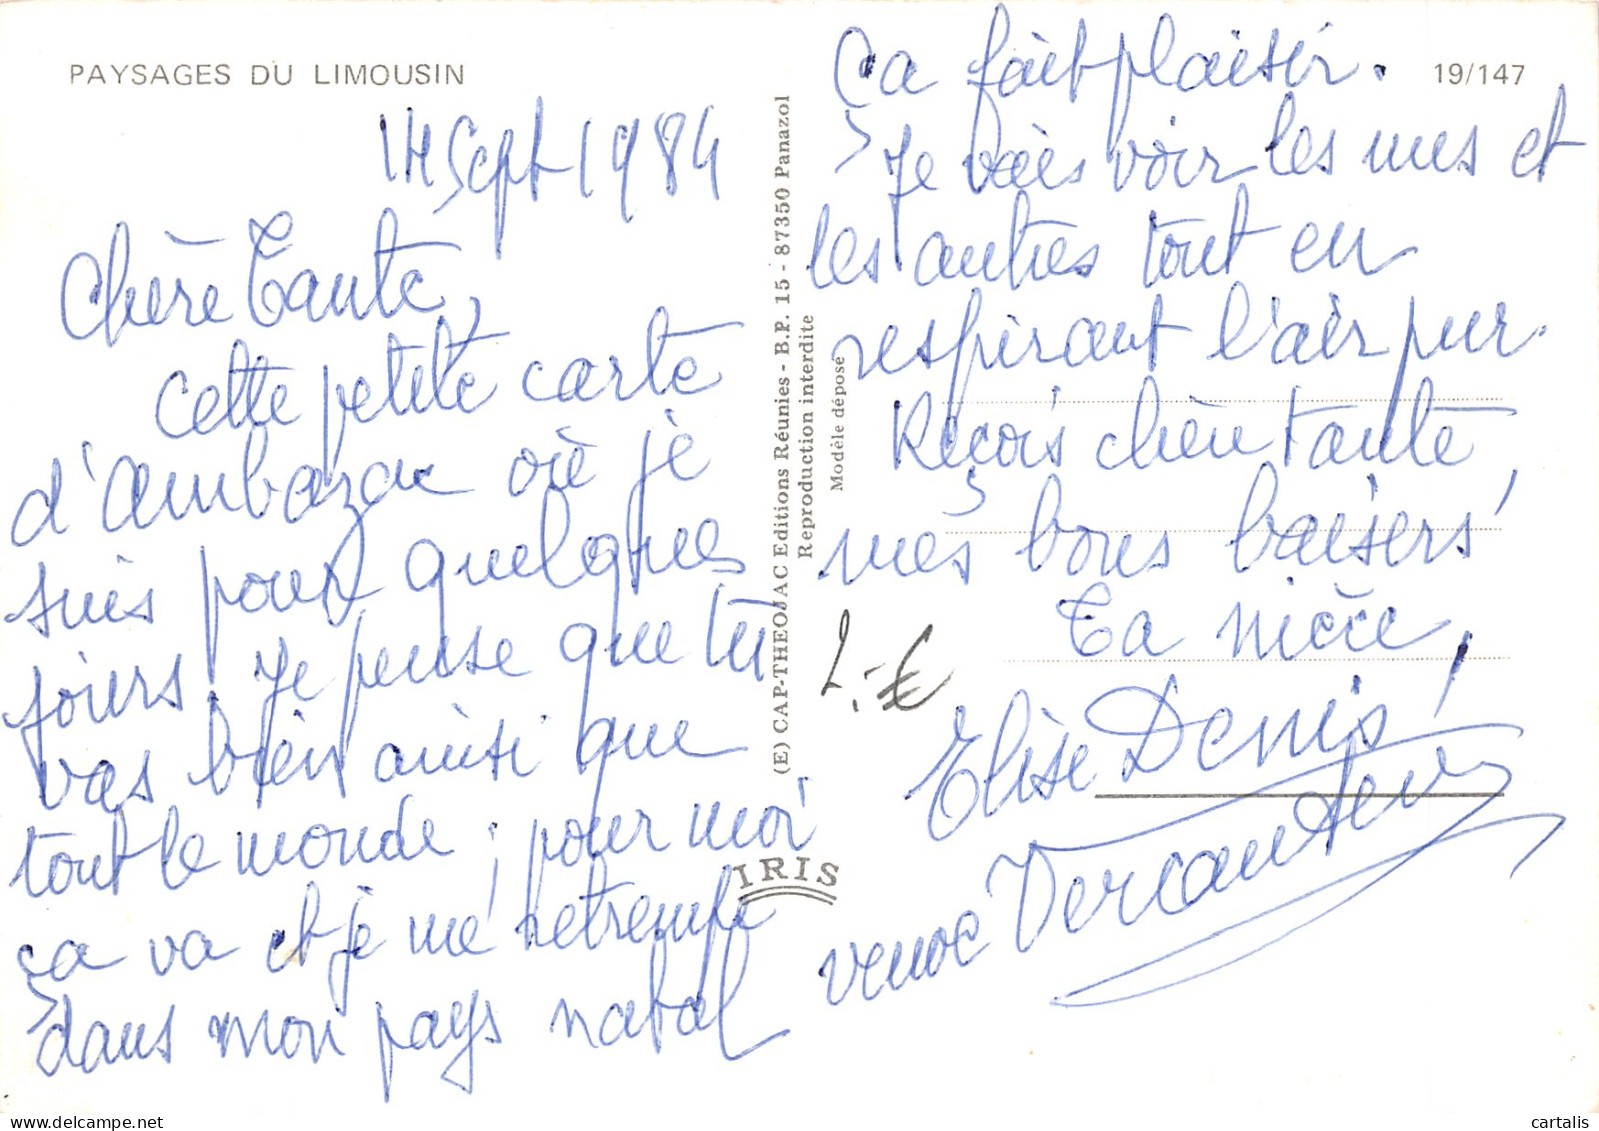 PAYSAGES DU LIMOUSIN
14 Sept 1984
Chère Tante,
cette petite carte
d'Ambazac où je
suis pour quelques
jours. Je pense que tu
vas bien ainsi que
tout le monde ; pour moi
ça va et je me retrempe
dans mon pays natal
(E) CAP-THEOJAC Editions Réunies - B.P. 15 - 87350 Panazol
Reproduction interdite
Modèle déposé
IRIS
19/147
Ça fait plaisir.
Je vais voir les uns et
les autres tout en
respirant l'air pur.
Reçois chère tante,
mes bons baisers
Ta nièce,
2,-€
Elise Denis
cartalis